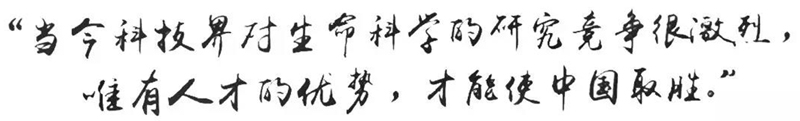 “当今科技界对生命科学的研究竞争很激烈，
唯有人才的优势，才能使中国取胜。”